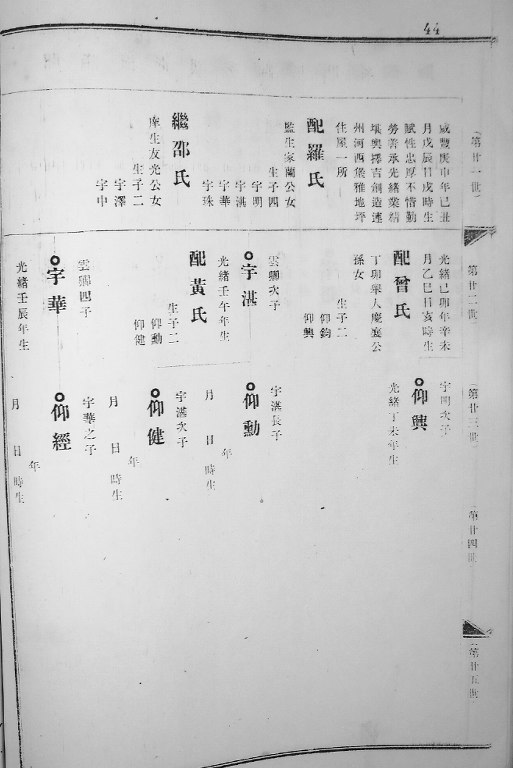 44
第廿一世
咸豐庚申年己丑
月戊辰日戌時生
賦性忠厚不惰勤
勞善承光緒業結
堪輿擇吉創造連
州河西堡雅地坪
住屋一所
配羅氏
監生家蘭公女
生子四
宇明
宇湛
宇華
宇珠
繼邵氏
庠生友光公女
生子二
宇澤
宇中
第廿二世
光緒己卯年辛未
月乙巳日亥時生
配曾氏
丁卯舉人慶宸公
孫女
生子二
仰鈞
仰興
雲卿次子
宇湛
光緒壬午年生
配黃氏
生子二
仰勳
仰健
雲卿四子
宇華
光緒壬辰年生
第廿三世
宇明次子
仰興
光緒丁未年生
宇湛長子
仰勳
年
月 日 時生
宇湛次子
仰健
年
月 日 時生
宇華之子
仰經
年
月 日 時生
第廿四世
第廿五世